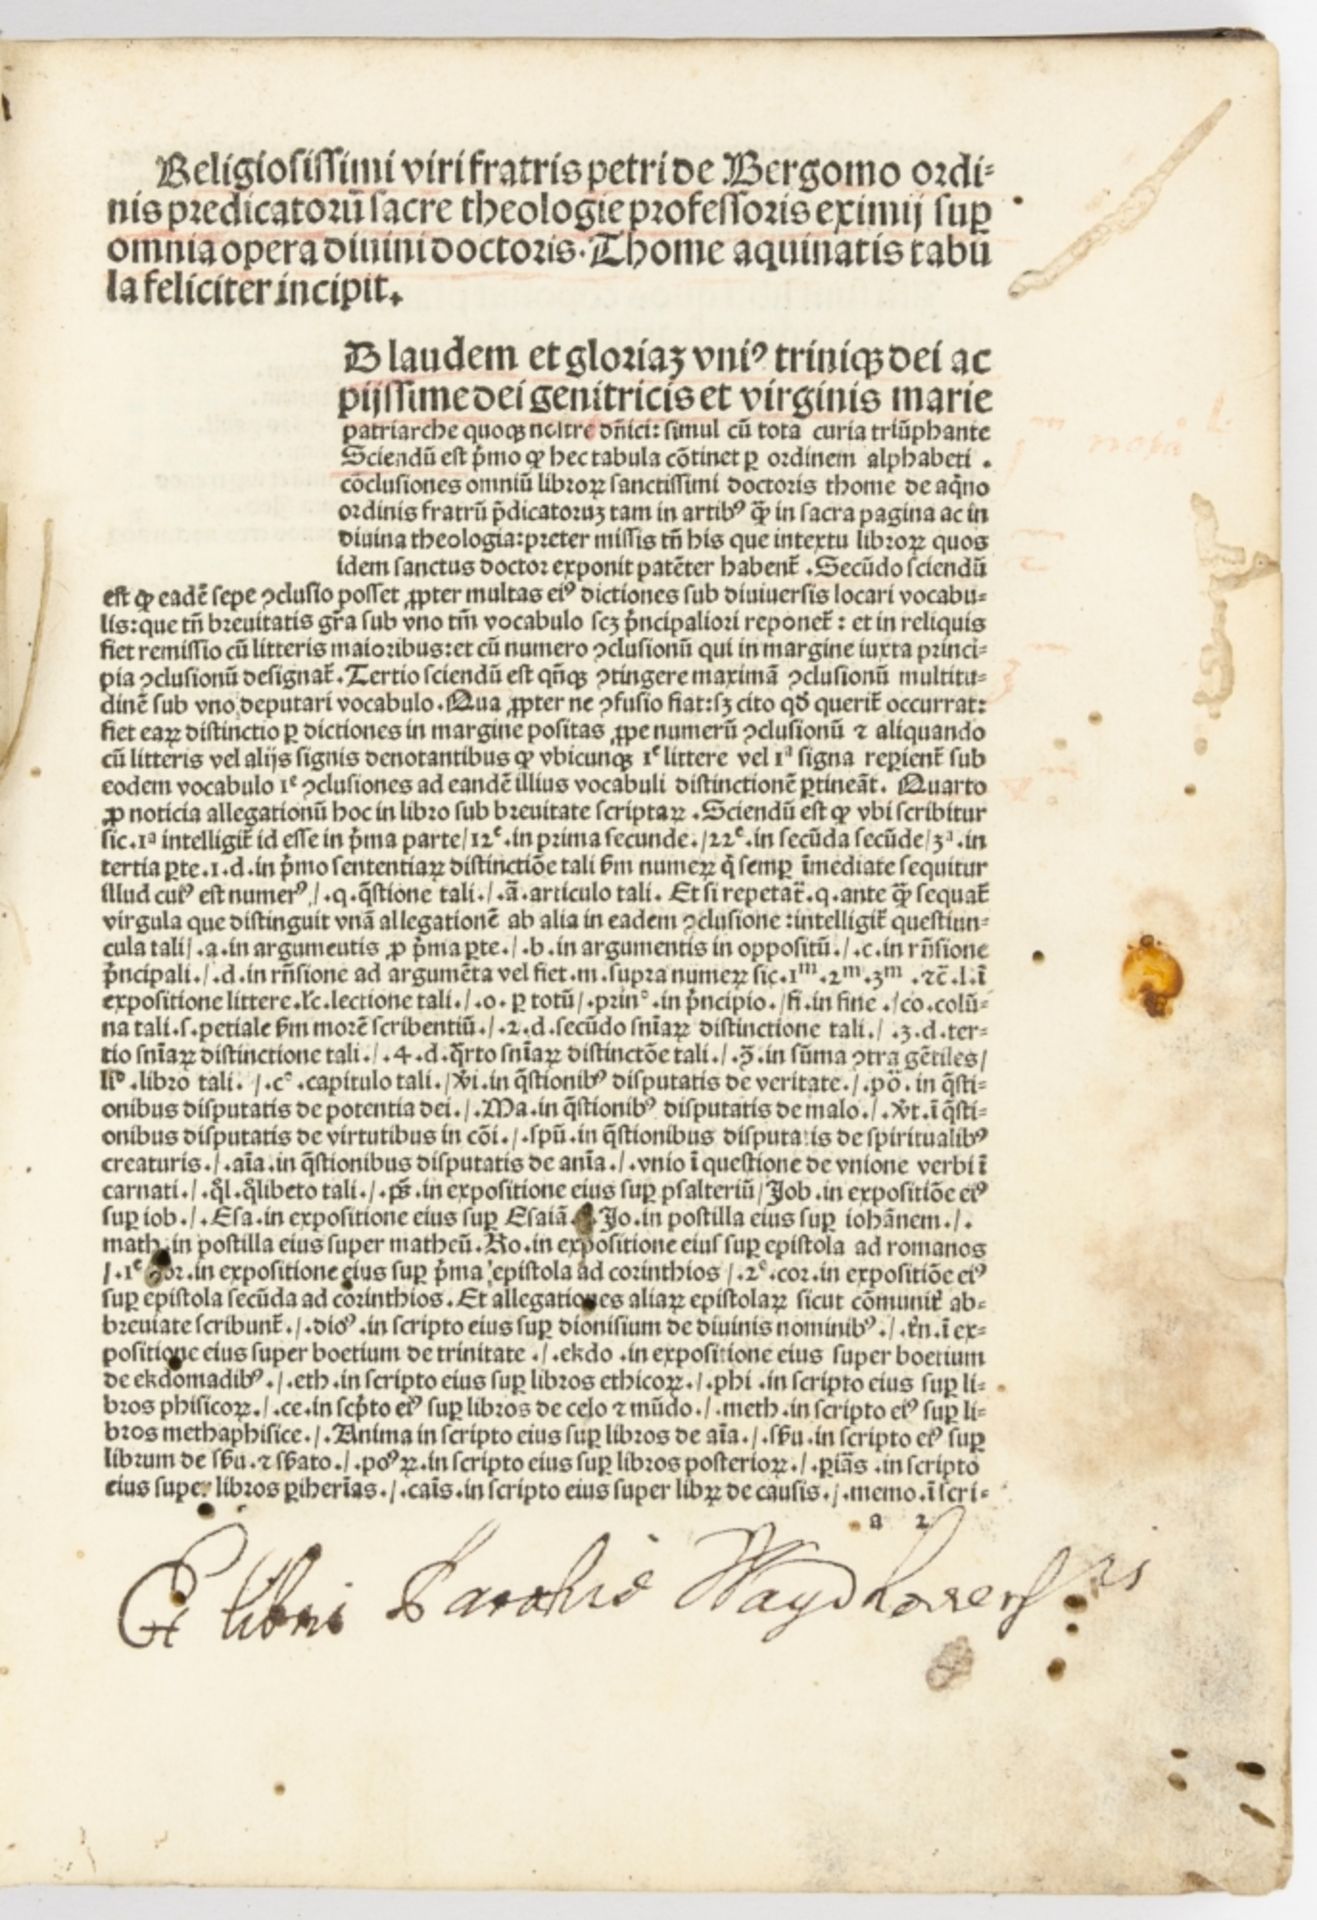 Religiosissimi viri fratris petri de Bergomo ordi-
nis predicatorū sacre theologie professoris eximij sup
omnia opera diuini doctoris. Thome aquinatis tabu
la feliciter incipit.
D laudem et gloriaʒ vniꝰ triniqꝫ dei ac
pijssime dei genitricis et virginis marie
patriarche quoqꝫ nostre dn̄ici: simul cū tota curia triūphante
Sciendū est p̄mo ꝙ hec tabula cōtinet ꝑ ordinem alphabeti .
cōclusiones omniū libroꝝ sanctissimi doctoris thome de aq̄no
ordinis fratrū p̄dicatoruʒ tam in artibꝰ q̄ꝫ in sacra pagina ac in
diuina theologia: preter missis tn̄ his que intextu libroꝝ quos
idem sanctus doctor exponit patēter habent̄ . Secūdo sciendū
est ꝙ eadē sepe ꝯclusio posset ꝓpter multas eiꝰ dictiones sub diuiuersis locari vocabu-
lis: que tn̄ breuitatis gr̄a sub vno tm̄ vocabulo scʒ p̄ncipaliori reponet̄ : et in reliquis
fiet remissio cū litteris maioribus: et cū numero ꝯclusionū qui in margine iuxta princi-
pia ꝯclusionū designat̄ . Tertio sciendū est qn̄qꝫ ꝯtingere maximā ꝯclusionū multitu-
dinē sub vno deputari vocabulo . Qua ꝓpter ne ꝯfusio fiat: sʒ cito qd̄ querit̄ occurrat:
fiet eaꝝ distinctio ꝑ dictiones in margine positas ꝓpe numerū ꝯclusionū ⁊ aliquando
cū litteris vel alijs signis denotantibus ꝙ vbicunqꝫ 1ᵉ littere vel 1ᵃ signa reꝑient̄ sub
eodem vocabulo 1ᵉ ꝯclusiones ad eandē illius vocabuli distinctionē ꝑtineāt. Quarto
ꝓ noticia allegationū hoc in libro sub breuitate scriptaꝝ . Sciendū est ꝙ vbi scribitur
sic .1ᵃ intelligit̄ id esse in p̄ma parte/12ᵉ. in prima secunde ./22ᵉ. in secūda secūde/3ᵃ. in
tertia ꝑte .1. d. in p̄mo sententiaꝝ distinctiōe tali ẜm numeꝝ q̄ semꝑ īmediate sequitur
illud cuiꝰ est numerꝰ/. q. q̄stione tali./. ā. articulo tali. Et si repetat̄. q. ante q̄ꝫ sequat̄
virgula que distinguit vnā allegationē ab alia in eadem ꝯclusione : intelligit̄ questiun-
cula tali/. a. in argumeutis ꝓ p̄ma ꝑte./. b. in argumentis in oppositū./. c. in rn̄sione
p̄ncipali./. d. in rn̄sione ad argumēta vel fiet. m. supra numeꝝ sic. 1ᵐ. 2ᵐ. 3ᵐ . ⁊c̄. l. ī
expositione littere . lc̄. lectione tali./. o. ꝑ totū/. prinᵒ. in p̄ncipio. /fi. in fine ./ co. colū-
na tali. s. petiale ẜm morē scribentiū./. 2. d. secūdo sn̄iaꝝ distinctione tali./. 3. d. ter-
tio sn̄iaꝝ distinctione tali./. 4. d. q̄rto sn̄iaꝝ distinctōe tali./. ꝯ̄. in sūma ꝯtra gētiles/
liᵒ . libro tali. /. cᵒ. capitulo tali./ v̄i. in q̄stionibꝰ disputatis de veritate./. pō. in q̄sti-
onibus disputatis de potentia dei./. Ma. in q̄stionibꝰ disputatis de malo./. v̄t. ī q̄sti-
onibus disputatis de virtutibus in cōi./. spū. in q̄stionibus disputatis de spiritualibꝰ
creaturis./. aīa. in q̄stionibus disputatis de anīa./. vnio ī questione de vnione verbi ī
carnati./. q̄l. q̄libeto tali./. ps̄. in expositione eius suꝑ psalteriū/ Job . in expositiōe eiꝰ
suꝑ iob./. Esa. in expositione eius suꝑ Esaiā. Jo. in postilla eius suꝑ iohānem./.
math. in postilla eius super matheū. Ro. in expositione eius suꝑ epistola ad romanos
/. 1ᵉ cor. in expositione eius suꝑ p̄ma epistola ad corinthios /. 2ᵉ. cor. in expositiōe eiꝰ
suꝑ epistola secūda ad corinthios. Et allegationes aliaꝝ epistolaꝝ sicut cōmunit̄ ab-
breuiate scribunt̄./. dioꝰ. in scripto eius suꝑ dionisium de diuinis nominibꝰ./. t̄n. ī ex-
positione eius super boetium de trinitate ./. ekdo . in expositione eius super boetium
de ekdomadibꝰ./. eth. in scripto eius suꝑ libros ethicoꝝ./. phi . in scripto eius suꝑ li-
bros phisicoꝝ./. ce. in scp̄to eiꝰ suꝑ libros de celo ⁊ mūdo./. meth. in scripto eiꝰ suꝑ li-
bros methaphisice./. Anima in scripto eius suꝑ libros de aīa./. sēu. in scripto eiꝰ suꝑ
librum de sēu. ⁊ sēato./. poꝰꝝ. in scripto eius suꝑ libros posterioꝝ./. ꝑiās . in scripto
eius super libros ꝑiherīas./. caīs. in scripto eius super libꝝ de causis./. memo. ī scri-
a 2
Ex libris Parochie Waydhovensis